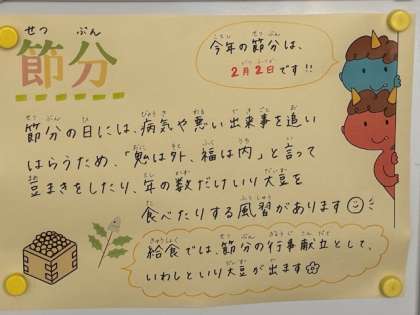 節分
今年の節分は、
2月2日です!!
節分の日には、病気や悪い出来事を追い
はらうため、「鬼は外、福は内」と言って
豆まきをしたり、年の数だけいり大豆を
食べたりする風習があります
給食では、節分の行事献立として、
いわしといり大豆が出ます